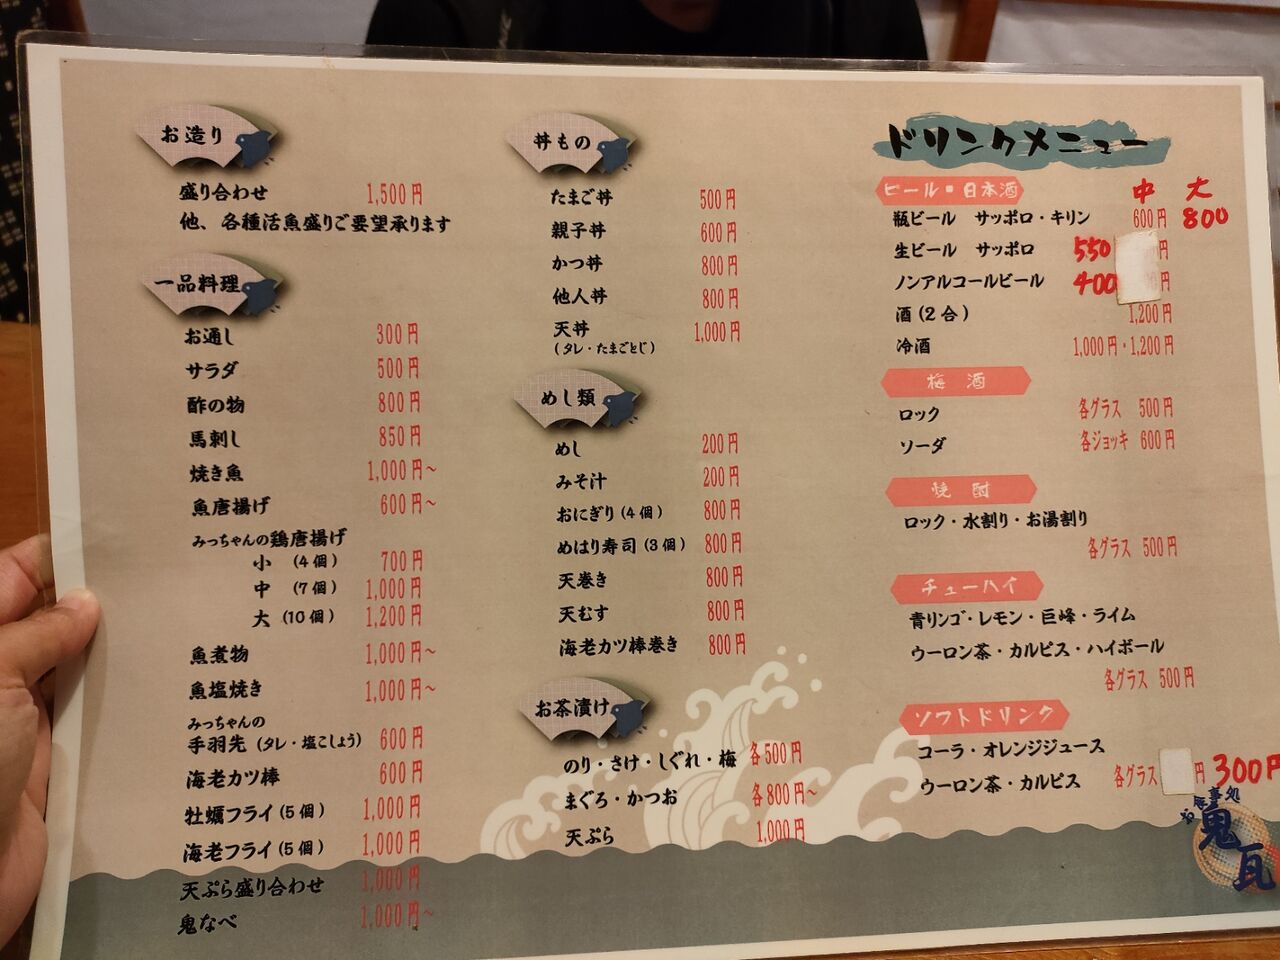 お造り
盛り合わせ 1,500円
他、各種活魚盛りご要望承ります
一品料理
お通し 300円
サラダ 500円
酢の物 800円
馬刺し 850円
焼き魚 1,000円~
魚唐揚げ 600円~
みっちゃんの鶏唐揚げ
小 (4個) 700円
中 (7個) 1,000円
大 (10個) 1,200円
魚煮物 1,000円~
魚塩焼き 1,000円~
みっちゃんの
手羽先 (タレ・塩こしょう) 600円
海老カツ棒 600円
牡蠣フライ(5個) 1,000円
海老フライ(5個) 1,000円
天ぷら盛り合わせ 1,000円
鬼なべ 1,000円~
丼もの
たまご丼 500円
親子丼 600円
かつ丼 800円
他人丼 800円
天丼 1,000円
(タレ・たまごとじ)
めし類
めし 200円
みそ汁 200円
おにぎり(4個) 800円
めはり寿司(3個) 800円
天巻き 800円
天むす 800円
海老カツ棒巻き 800円
お茶漬け
のり・さけ・しぐれ・梅 各500円
まぐろ・かつお 各800円~
天ぷら 1,000円
ドリンクメニュー
ビール・日本酒 中 大
瓶ビール サッポロ・キリン 600円 800
生ビール サッポロ 550 円
ノンアルコールビール 400 円
酒(2合) 1,200円
冷酒 1,000円・1,200円
梅酒
ロック 各グラス 500円
ソーダ 各ジョッキ 600円
焼酎
ロック・水割り・お湯割り
各グラス 500円
チューハイ
青リンゴ・レモン・巨峰・ライム
ウーロン茶・カルピス・ハイボール
各グラス 500円
ソフトドリンク
コーラ・オレンジジュース
ウーロン茶・カルピス 各グラス 円 300円
鬼瓦